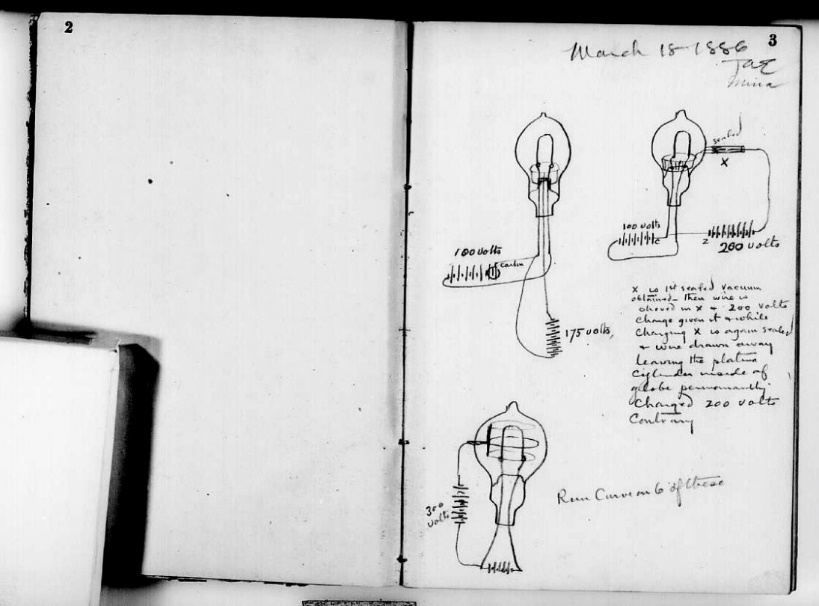 2
3
March 18 1886
TAE
Mina
sealed
X
100 volts
200 volts
Z
C
100 volts
Carbon
175 volts,
X is 1st sealed vacuum
obtained - then wire is
shoved in X & 200 volts
Charge given it & while
Charging X is again sealed
& wire drawn away
Leaving the platina
Cylinder inside of
globe permanently
Charged 200 volts
Contrary
300
volts
Run Curve on 6 of these